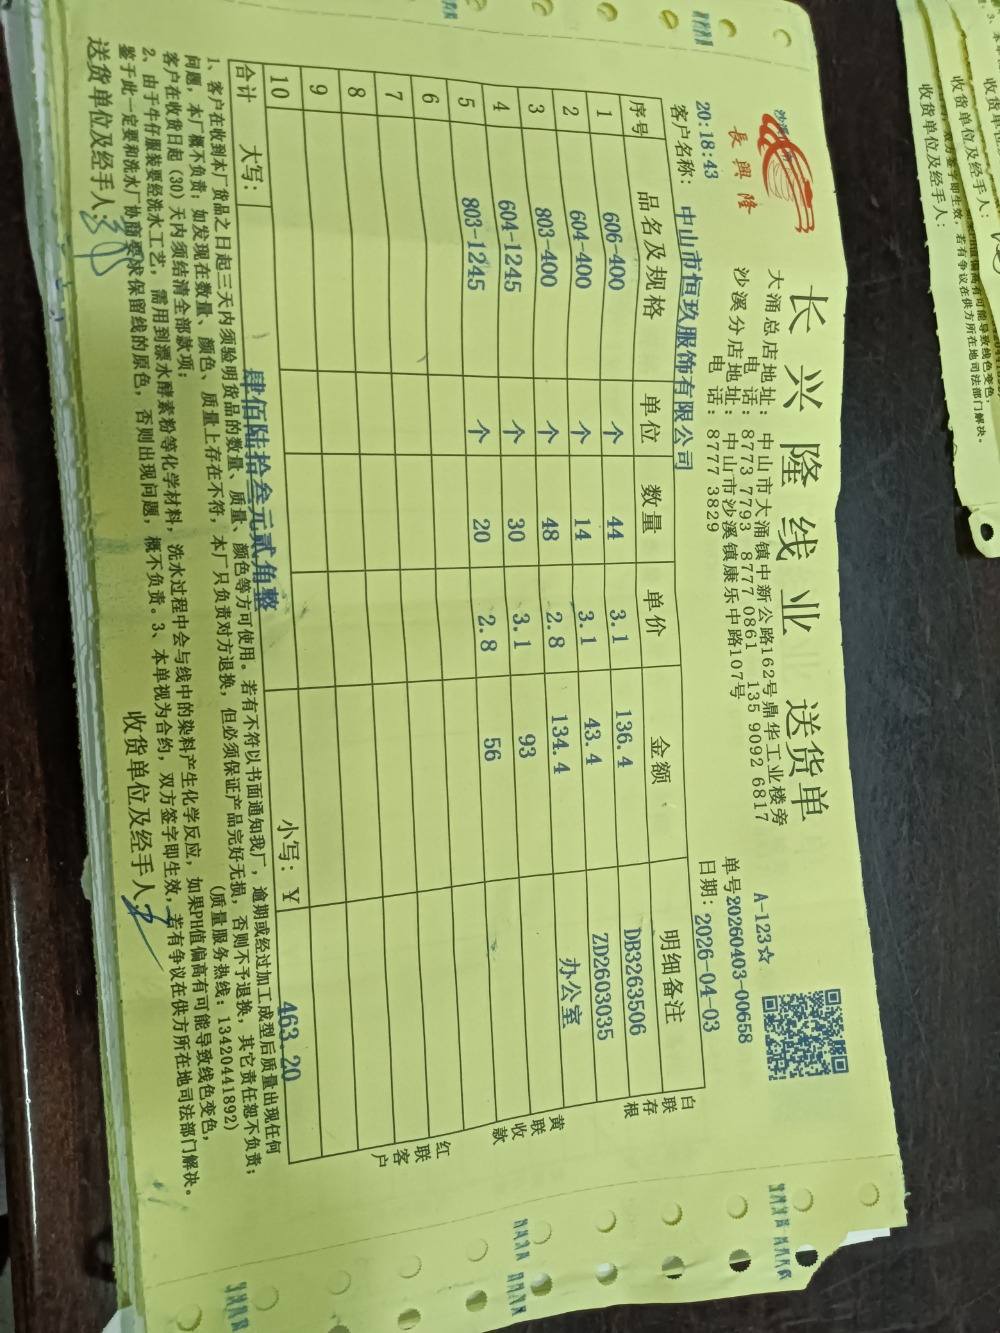 長興隆
长兴隆线业 送货单
大涌总店地址: 中山市大涌镇中新公路162号鼎华工业楼旁
电 话: 8773 7793 8777 0861 135 9092 6817
沙溪分店地址: 中山市沙溪镇康乐中路107号
电 话: 8777 3829
A-123☆
单号20260403-00658
20:18:43
客户名称: 中山市恒玖服饰有限公司
日期: 2026-04-03
序号 品名及规格 单位 数量 单价 金额 明细备注
1 606-400 个 44 3.1 136.4 DB3263506
2 604-400 个 14 3.1 43.4 ZD2603035
3 803-400 个 48 2.8 134.4 办公室
4 604-1245 个 30 3.1 93
5 803-1245 个 20 2.8 56
6
7
8
9
10
合计 大写: 肆佰陆拾叁元贰角整 小写: ¥ 463.20
白联存根
黄联收款
红联客户
1、客户在收到本厂货品之日起三天内须验明货品的数量、质量、颜色等方可使用。若有不符以书面通知我厂，逾期或经过加工成型后质量出现任何
问题，本厂概不负责；如发现在数量、颜色、质量上存在不符，本厂只负责对方退换，但必须保证产品完好无损，否则不予退换，其它责任恕不负责；
客户在收货日起（30）天内须结清全部款项； (质量服务热线: 13420441892)
2、由于牛仔服装要经洗水工艺，需用到漂水酵素粉等化学材料，洗水过程中会与线中的染料产生化学反应，如果PH值偏高有可能导致线色变色，
鉴于此一定要和洗水厂协商要求保留线的原色，否则出现问题，概不负责。3、本单视为合约，双方签字即生效，若有争议在供方所在地司法部门解决。
送货单位及经手人: 收货单位及经手人:
值偏高有可能导致线色变色，
双方签字即生效，若有争议在供方所在地司法部门解决。
收货单位及经手人:
收货单位及经手人: